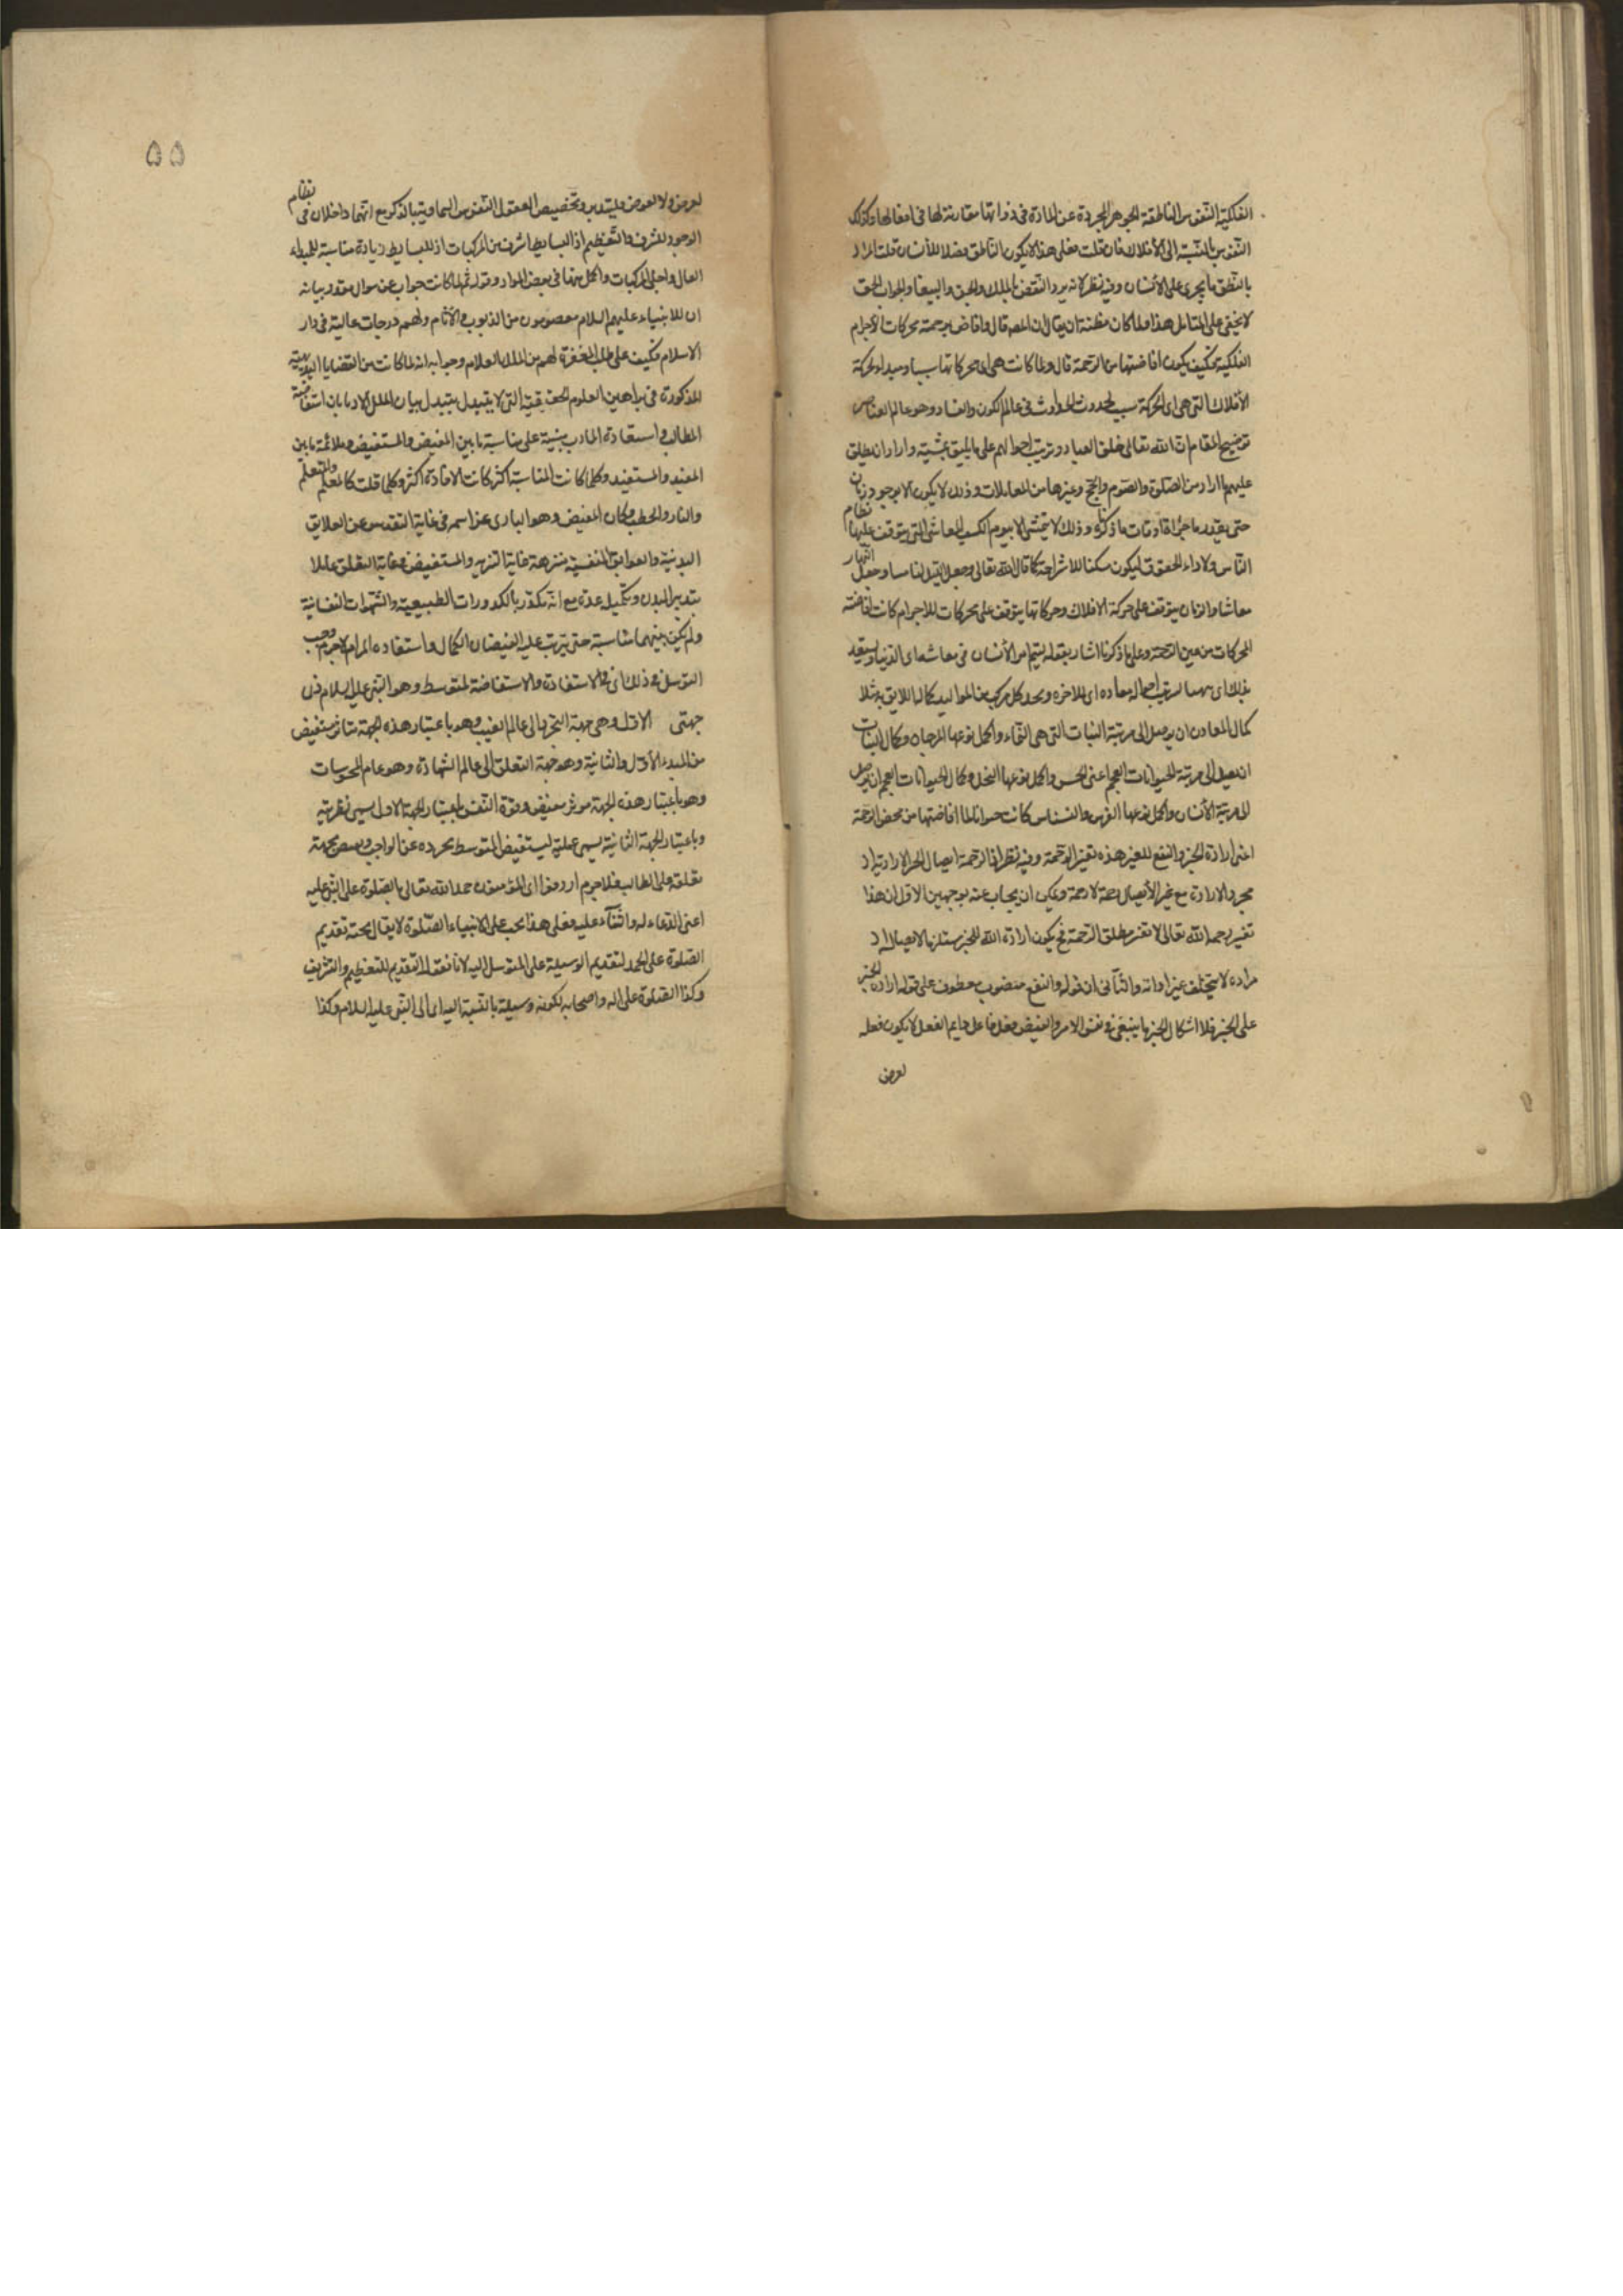 الفلكية النفوس الناطقة الجوهر المجردة عن المادة في ذواتها مقارنة لها في افعالها وكذلك
النفوس بالنسبة الى الأفلاك فان قلت فعلى هذا لا يكون الناطق فصلا للأنسان قلت المراد
بالنطق ما يجرى على الأنسان وفيه نظر لانه يرد النقض بالملك والجن والببغا والجواب الحق
لا يخفى على المتامل هذا ولما كان مظنة ان يقال ان المصه قال وافاض برحمته محركات الأجرام
الفلكية فكيف يكون افاضتها من الرحمة قال ولما كانت هى اى محركاتها سببا ومبداء لحركة
الأفلاك التى هى اى الحركة سبب لحدوث الحوادث فى عالم الكون والفساد وهو عالم العناصر
توضيح المقام ان الله تعالى خلق العباد وترتيب احوالهم على ما يليق بمشيته واراد ان يطلق
عليهم ما اراد من الصلوة والصوم والحج وغيرها من المعاملات وذلك لا يكون الا بوجود زمان
حتى يقدر ما جزا اوقات ما ذكرنا وذلك لا يتمشى الا بيوم الكسب المعاشى التى يتوقف عليها نظام
الناس ولاداء الحقوق ليكون سكنا للاستراحة كما قال الله تعالى وجعل الليل لباسا وجعل النهار
معاشا والزمان يتوقف على حركة الافلاك وحركاتها يتوقف على محركات للاجرام كانت افاضته
المحركات من عين الرحمة وعلى ما ذكرنا اشار بقوله ليتم امر الأنسان فى معاشه اى الدنيا ويستعد
بذلك اى لترتيب احواله معاده اى الاخره ويجد كل مركب من المواليد كماله اللايق به مثلا
كمال المعادن ان يوصل الى مرتبة النبات التى هى النماء واكمل نوعها المرجان وكمال النبات
ان يصل الى مرتبة الحيوانات العجم اعنى الحس واكمل نوعها النخل وكمال الحيوانات العجم ان يوصل
الى مرتبة الأنسان واكمل نوعها الفرس والنسناس كانت جوابا لما افاضتها من محض الرحمة
اعنى ارادة الخير والنفع للغير هذه تفسير الرحمة وفيه نظر لان الرحمة ايصال الخير لا ارادته اذ
مجرد الارادة مع غير الأيصال رحمة لا رحمة ويمكن ان يجاب عنه بوجهين الاول ان هذا
تفسير رحمة الله تعالى لا تفسير مطلق الرحمة فح يكون ارادة الله للخير مستلزما لايصاله اذ
مراده لا يتخلف عن ارادته والثانى ان قوله والنفع منصوب معطوف على قوله ارادة الخير
على الخير فلا اشكال الخير ما ينبغى فى نفس الامر والفيض فعل فاعل دايم الفعل لا يكون فعله
لعرض
٥٥
لعرض ولا لعوض وتخصيص العقول النفوس السماوية بالذكر مع انهما داخلان فى نظام
الوجود للشرف والتعظيم اذ البسايط اشرف من المركبات اذ للبسايط زيادة مناسبة للمبداء
العال واجلى المركبات واكمل منها فى بعض المواد وقوله ثم لما كانت جواب عن سوال مقدر بيانه
ان للانبياء عليهم السلام معصومون من الذنوب والآثام ولهم درجات عالية فى دار
الاسلام فكيف على طلب المغفرة لهم من الملك العلام وجوابه انه لما كانت من القضايا البديهية
المذكورة فى براهين العلوم الحقيقية التى لا يتبدل بتبدل بيان الملل والاديان ان استفاضة
المطالب واستفادة المارب مبنية على مناسبة ما بين المفيض والمستفيض وملائمة ما بين
المفيد والمستفيد وكلما كانت المناسبة اكثر كانت الافادة اكثر وكلما قلت كالمعلم والمتعلم
والنار والحطب وكان المفيض وهو البارى عز اسمه فى غاية التقدس عن العلايق
البدنية والعوايق النفسية منزهة غاية التنزيه والمستفيض فى غاية التعلق عاملا
بتدبير البدن وتكميل عدة مع انه مكدر بالكدورات الطبيعية والشهوات النفسانية
ولم يكن بينهما مناسبة حتى يترتب عليه الفيضان الكمال واستفاده المرام لاجرم وجب
التوسل فى ذلك اى فى الاستفادة والاستفاضة لمتوسط وهو النبى عليه السلام ذى
جهتى الاول وهى جهة التجرد الى عالم الغيب وهو باعتبار هذه الجهة متاثر مستفيض
من المبدء الأول والثانية وهو جهة التعلق الى عالم الشهادة وهو عام المحسوسات
وهو باعتبار هذه الجهة موثر مفيض وقوة النفس باعتبار الجهة الاول يسمى نظرية
وباعتبار الجهة الثانية يسمى عملية ليستفيض المتوسط بتجرده عن الواجب ويفيض بجهة
تعلقه على الطالب فلاجرم اردفوا اى المؤمنون حمد الله تعالى بالصلوة على النبى عليه
اعنى الدعاء له والثناء عليه فعلى هذا يجب على الانبياء الصلوة لا يقال بجنة تقديم
الصلوة على الحمد لتقديم الوسيلة على المتوسل اليه لانا نقول التقديم للتعظيم والتشريف
وكذا الصلوة على اله واصحابه لكونه وسيلة بالنسبة اليه اى الى النبى عليه السلام وكذا